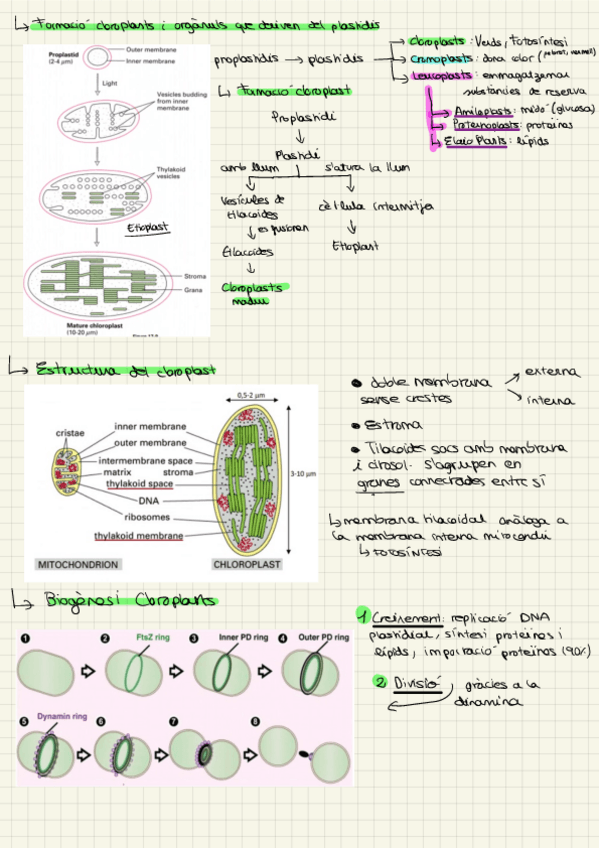 ↳ Formació cloroplasts i orgànuls que deriven del plastidis
Proplastid
(2-4 μm)
Outer membrane
Inner membrane
Light
Vesicles budding
from inner
membrane
Thylakoid
vesicles
Etioplast
Stroma
Grana
Mature chloroplast
(10-20 μm)
proplastidis → plastidis
→ Cloroplasts: Verds, Fotosíntesi
→ Cromoplasts: dona color
→ Leucoplasts: emmagatzemar
substàncies de reserva
→ Amiloplasts: midó (glucosa)
→ Proteinoplasts: proteïnes
↳ Elaioplasts: lípids
↳ Formació cloroplast
Proplastidi
↓
Plastidi
amb llum
s'atura la llum
Vesícules de
tilacoides
↓ es fusionen
tilacoides
↓
Cloroplasts
madur
cèl·lula intermitja
↓
Etioplast
↳ Estructura del cloroplast
0,5-2 μm
3-10 μm
cristae
inner membrane
outer membrane
intermembrane space
matrix
stroma
thylakoid space
DNA
ribosomes
thylakoid membrane
MITOCHONDRION
CHLOROPLAST
• doble membrana
sense crestes
externa
interna
• Estroma
• Tilacoides sacs amb membrana
i citosol. s'agrupen en
granes connectades entre sí
↳ membrana tilacoidal anàloga a
la membrana interna mitocondri
↳ FOTOSÍNTESI
↳ Biogènesi Cloroplasts
1
2
FtsZ ring
3
Inner PD ring
4
Outer PD ring
5
Dynamin ring
6
7
8
1 Creixement: replicació DNA
plastidial, síntesi proteïnes i
lípids, importació proteïnes (90%)
2 Divisió, gràcies a la
dinamina